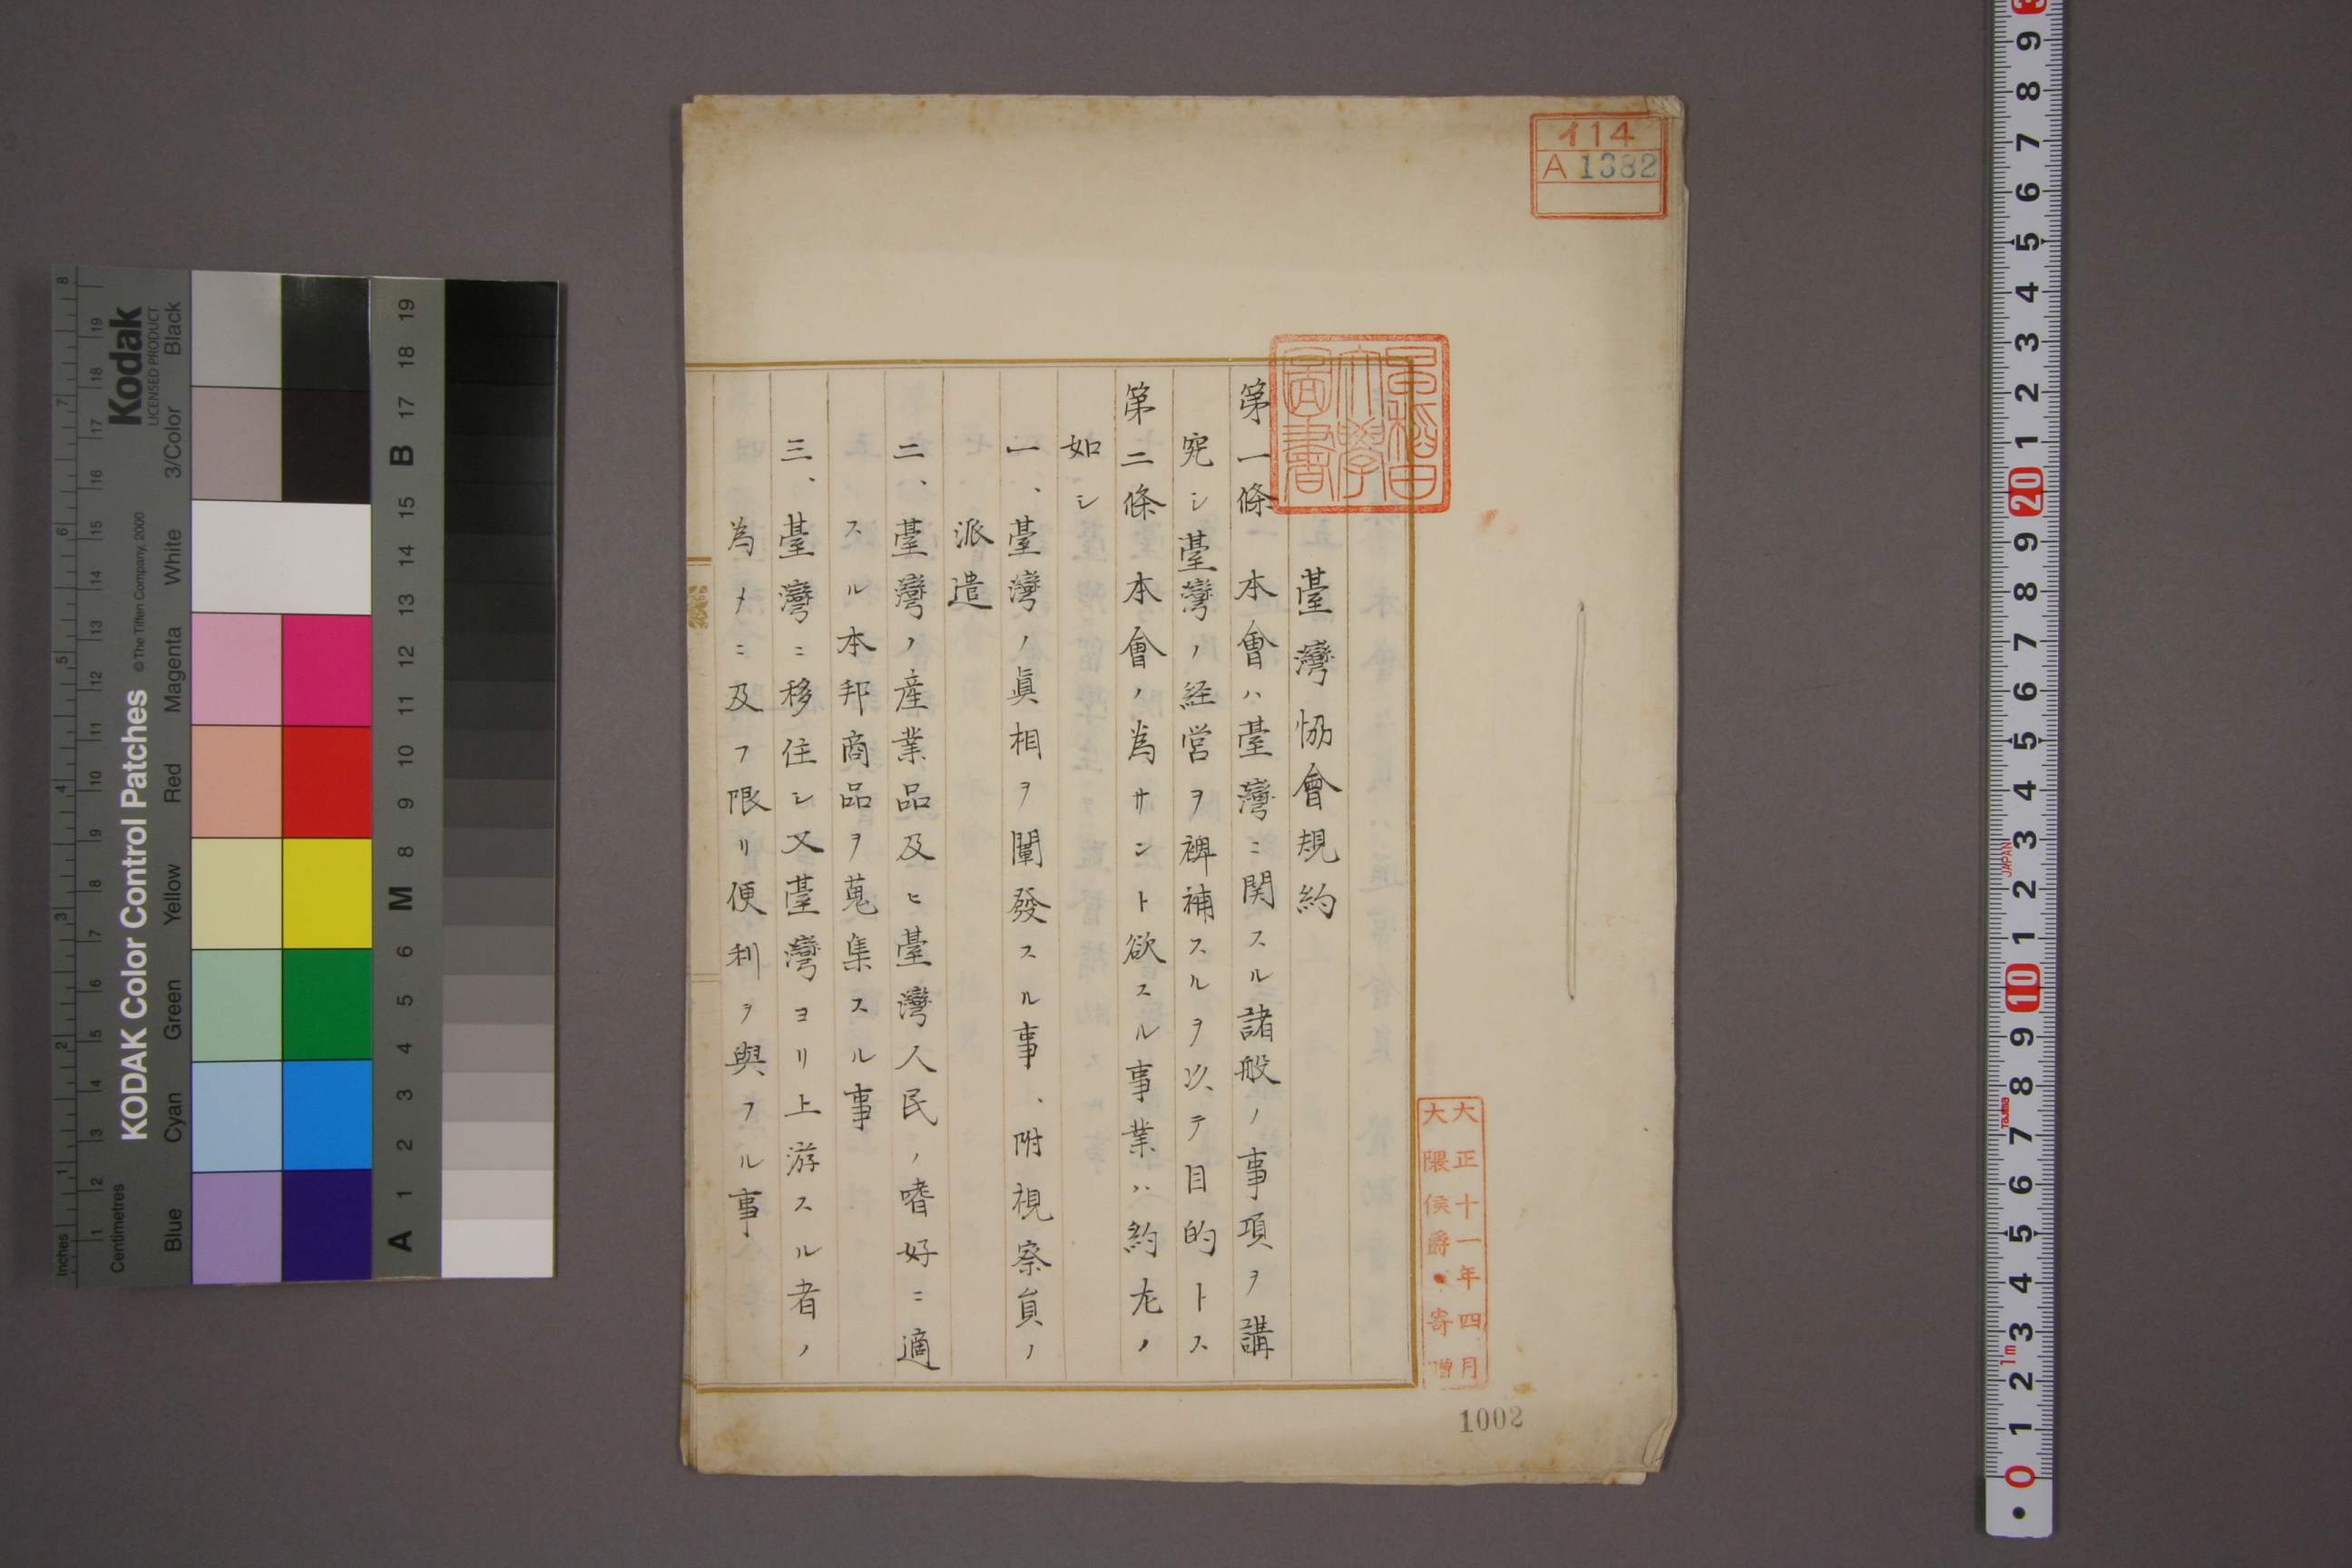 イ14
A 1382
早稲田
大學
圖書
臺灣協會規約
第一條 本會ハ臺灣ニ関スル諸般ノ事項ヲ講
究シ臺灣ノ経営ヲ裨補スルヲ以テ目的トス
第二條 本會ノ為サント欲スル事業ハ約左ノ
如シ
一、臺灣ノ眞相ヲ闡發スル事、附視察員ノ
派遣
二、臺灣ノ産業品及ヒ臺灣人民ノ嗜好ニ適
スル本邦商品ヲ蒐集スル事
三、臺灣ニ移住シ又臺灣ヨリ上游スル者ノ
為メニ及フ限リ便利ヲ與フル事
大正十一年四月
大隈侯爵寄贈
1002
KODAK Color Control Patches
© The Tiffen Company, 2000
Kodak
LICENSED PRODUCT
Inches
Centimetres
Blue
Cyan
Green
Yellow
Red
Magenta
White
3/Color
Black
1 2 3 4 5 6 7 8
A 1 2 3 4 5 6 M 8 9 10 11 12 13 14 15 B 17 18 19
JAPAN
Tajima
1m
0 1 2 3 4 5 6 7 8 9 10 1 2 3 4 5 6 7 8 9 20 1 2 3 4 5 6 7 8 9